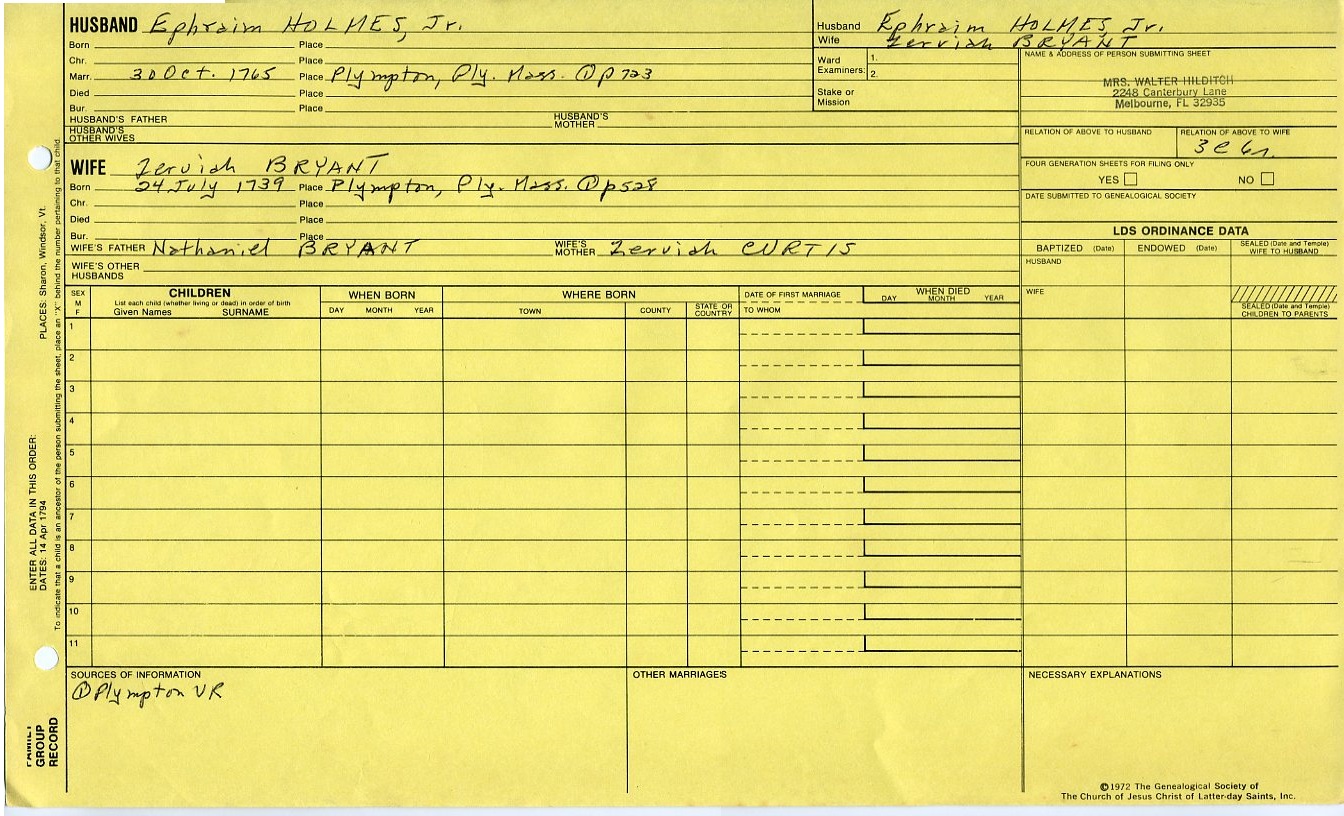 HUSBAND Ephraim HOLMES, Jr.
Born Place
Chr. Place
Marr. 30 Oct. 1765 Place Plympton, Ply. Mass. ① p 723
Died Place
Bur. Place
HUSBAND'S FATHER HUSBAND'S MOTHER
HUSBAND'S OTHER WIVES
Husband Ephraim HOLMES, Jr.
Wife Zerviah BRYANT
Ward Examiners: 1.
2.
Stake or Mission
NAME & ADDRESS OF PERSON SUBMITTING SHEET
MRS. WALTER HILDITCH
2248 Canterbury Lane
Melbourne, FL 32935
RELATION OF ABOVE TO HUSBAND RELATION OF ABOVE TO WIFE
3 C 6r.
FOUR GENERATION SHEETS FOR FILING ONLY
YES NO
DATE SUBMITTED TO GENEALOGICAL SOCIETY
WIFE Zerviah BRYANT
Born 24 July 1739 Place Plympton, Ply. Mass. ① p 528
Chr. Place
Died Place
Bur. Place
WIFE'S FATHER Nathaniel BRYANT WIFE'S MOTHER Zerviah CURTIS
WIFE'S OTHER HUSBANDS
LDS ORDINANCE DATA
BAPTIZED (Date) ENDOWED (Date) SEALED (Date and Temple) WIFE TO HUSBAND
HUSBAND
WIFE
SEALED (Date and Temple) CHILDREN TO PARENTS
SEX M F
CHILDREN
List each child (whether living or dead) in order of birth
Given Names SURNAME
WHEN BORN
DAY MONTH YEAR
WHERE BORN
TOWN COUNTY STATE OR COUNTRY
DATE OF FIRST MARRIAGE
TO WHOM
WHEN DIED
DAY MONTH YEAR
1
2
3
4
5
6
7
8
9
10
11
SOURCES OF INFORMATION
① Plympton VR
OTHER MARRIAGES
NECESSARY EXPLANATIONS
©1972 The Genealogical Society of
The Church of Jesus Christ of Latter-day Saints, Inc.
FAMILY GROUP RECORD
ENTER ALL DATA IN THIS ORDER:
DATES: 14 Apr 1794 PLACES: Sharon, Windsor, Vt.
To indicate that a child is an ancestor of the person submitting the sheet, place an "X" behind the number pertaining to that child.